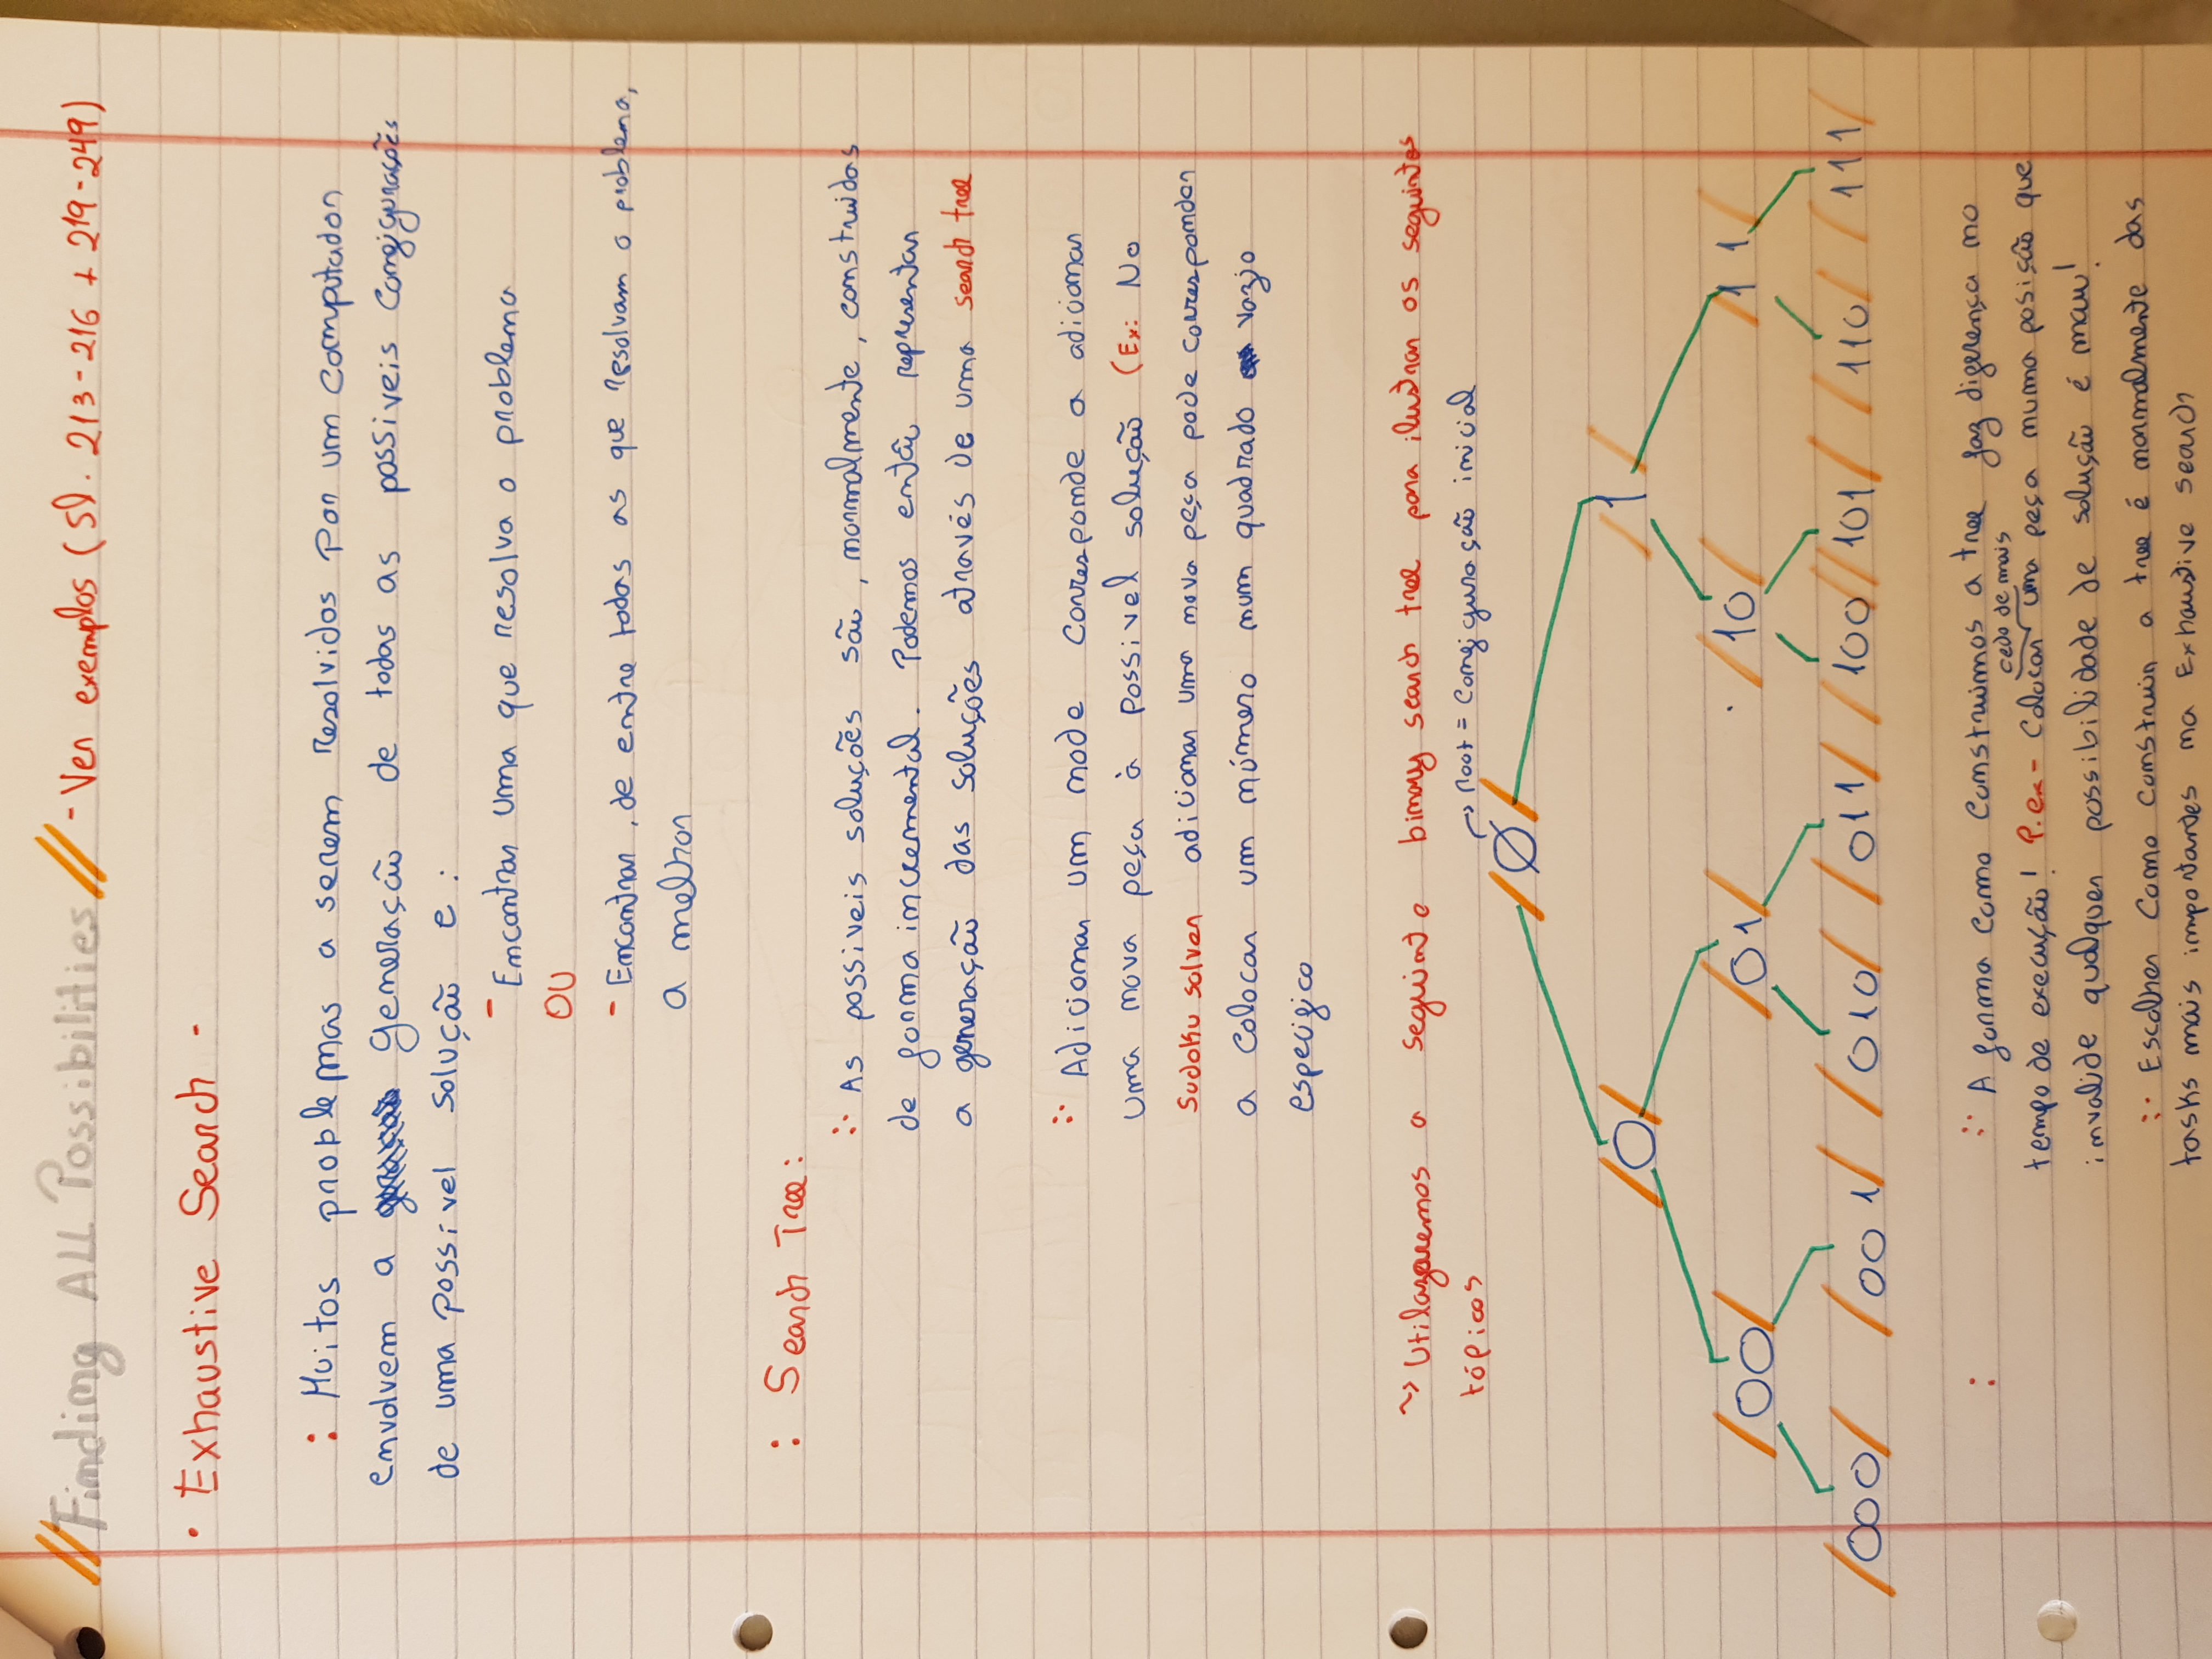 //Finding ALL Possibilities// - Ver exemplos (Sl. 213-216 + 219-249)
• Exhaustive Search -
: Muitos problemas a serem resolvidos por um computador
envolvem a geração de todas as possiveis configurações
de uma possível solução e :
- Encontrar uma que resolva o problema
OU
- Encontrar, de entre todas as que resolvam o problema,
a melhor
: Search Tree:
:· As possiveis soluções são, normalmente, construidas
de forma incremental. Podemos então representar
a generação das soluções através de uma search tree
:· Adicionar um node corresponde a adicionar
uma nova peça à possivel solução (Ex: No
Sudoku solver adicionar uma nova peça pode corresponder
a colocar um número num quadrado vazio
especifico
~> Utilazaremos a seguinte binary search tree para ilustrar os seguintes
tópicos
-> Root = Configuração inicial
/Ø/
/0/ /1/
/00/ /01/ /10/ /11/
/000/ /001/ /010/ /011/ /100/ /101/ /110/ /111/
: :· A forma como construimos a tree faz diferença no
cedo de mais
tempo de execução! P.ex- Colocar uma peça numa posição que
invalide qualquer possibilidade de solução é mau!
:· Escolher como construir a tree é normalmente das
tasks mais importantes na Exhaustive search